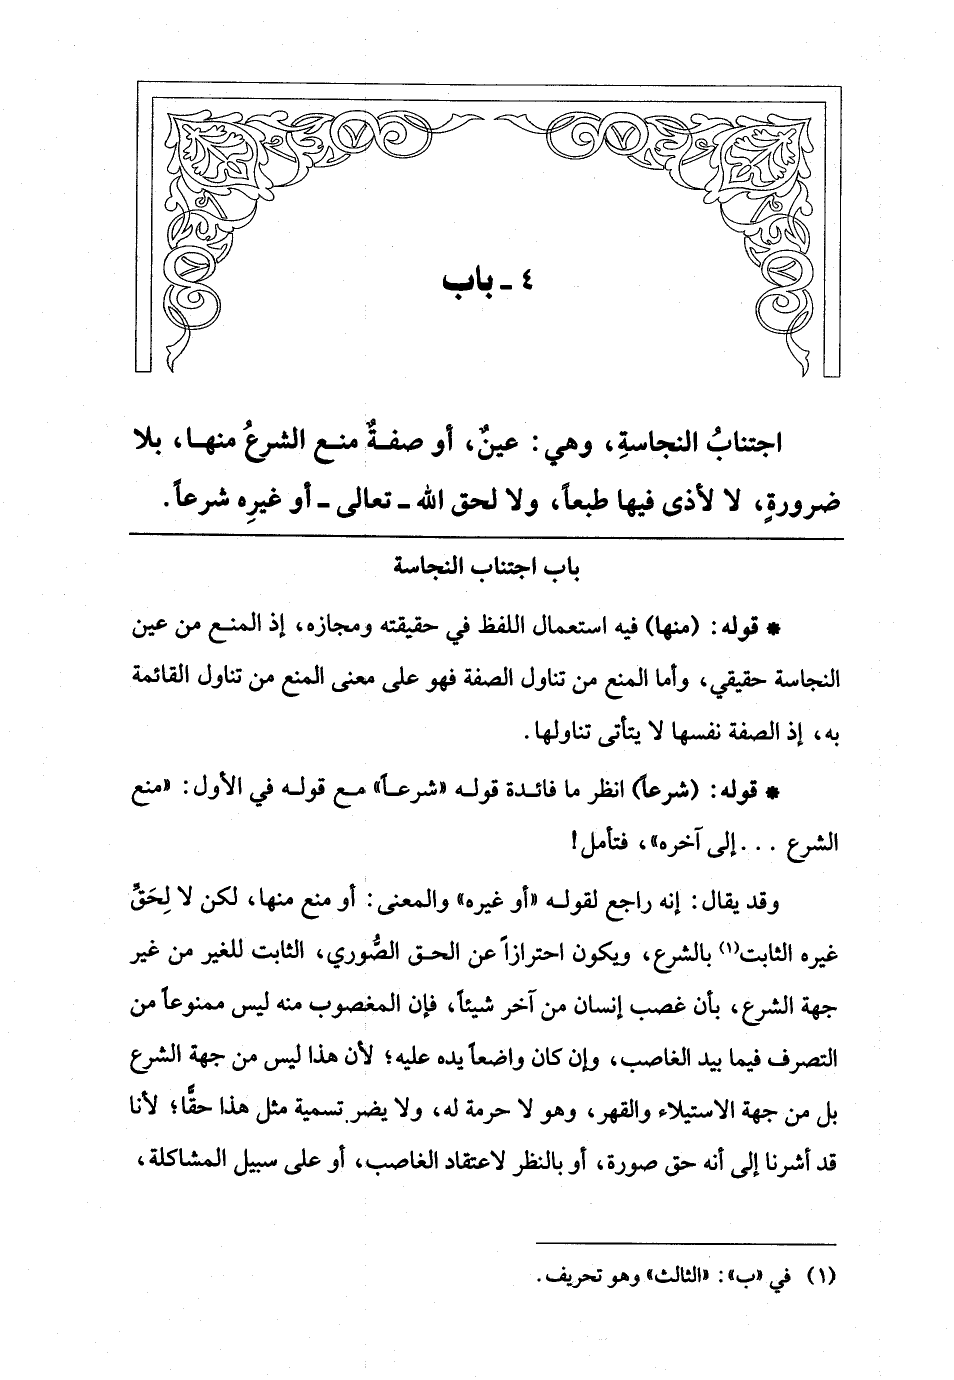 ٤ ـ باب
اجتنابُ النجاسةِ، وهي: عينٌ، أو صفـةٌ منـع الشرعُ منهـا، بلا
ضرورةٍ، لا لأذى فيها طبعاً، ولا لحق الله ـ تعالى ـ أو غيرِه شرعاً.
باب اجتناب النجاسة
* قوله: (منها) فيه استعمال اللفظ في حقيقته ومجازه، إذ المنـع من عين
النجاسة حقيقي، وأما المنع من تناول الصفة فهو على معنى المنع من تناول القائمة
به، إذ الصفة نفسها لا يتأتى تناولها.
* قوله: (شرعاً) انظر ما فائـدة قولـه «شرعـاً» مـع قولـه في الأول: «منع
الشرع . . .إلى آخره»، فتأمل!
وقد يقال: إنه راجع لقولـه «أو غيره» والمعنى: أو منع منها، لكن لا لِحَقِّ
غيره الثابت(١) بالشرع، ويكون احترازاً عن الحـق الصُّوري، الثابت للغير من غير
جهة الشرع، بأن غصب إنسان من آخر شيئاً، فإن المغصوب منه ليس ممنوعاً من
التصرف فيما بيد الغاصب، وإن كان واضعاً يده عليه؛ لأن هذا ليس من جهة الشرع
بل من جهة الاستيلاء والقهر، وهو لا حرمة له، ولا يضر تسمية مثل هذا حقًّا؛ لأنا
قد أشرنا إلى أنه حق صورة، أو بالنظر لاعتقاد الغاصب، أو على سبيل المشاكلة،
(١) في «ب»: «الثالث» وهو تحريف.